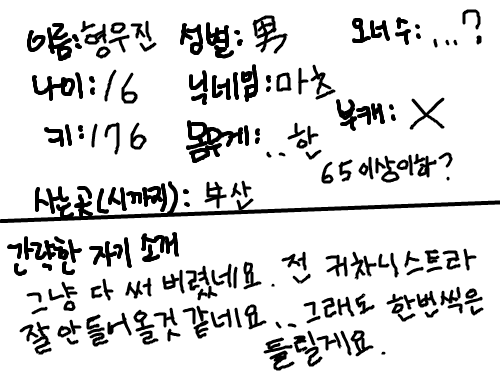 이름:형우진 성별:男 오너 수:...?
나이:16 닉네임:마츠 부캐:X
키:176 몸무게:..한
65이상이하?
사는곳(시까지): 부산
간략한 자기 소개
그냥 다 써 버렸네요. 전 귀차니스트라
잘 안들어올것 같네요... 그래도 한번씩은
들릴게요.